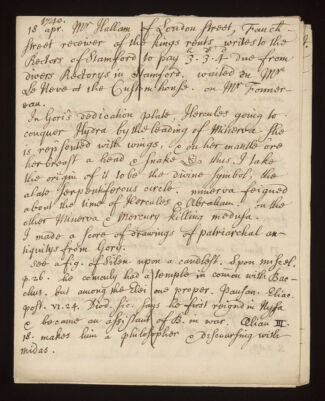 1740.
18 apr. Mr Hallam of London Street, Fanch
Street receiver of the kings rents writes to the
Rectors of Stamford to pay 3-3-4 due from
divers Rectorys in Stamford. waited on Mr
Le Neve at the Customhouse. on Mr Fonner
eau.
In Gori's dedication plate, Hercules going to
conquer Hydra by the leading of Minerva. she
is represented with wings, & on her mantle ore
her breast a head & snake thus. I take
the origin of it to be the divine symbol, the
alate serpentiferous circle. minerva feigned
about the time of Hercules & Abraham. in the
other Minerva & Mercury killing medusa.
I made a score of drawings of patriarchal an-
tiquitys from Gory.
see a fig. of Silen upon a candlest. Spon miscel.
p. 26. he comonly had a temple in comon with Bac-
chus. but among the Elei one proper. Pausan. Eliac.
post. VI. 24. Diod. sic. says he first reignd in Nysa
& became an assistant of B. in war. Ælian III
18. makes him a philosopher & discoursing with
midas.